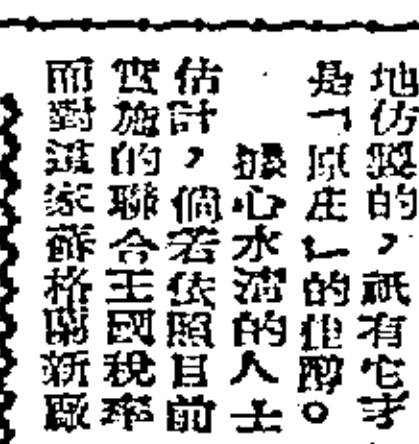 地仿製的，祇有它才
是「原庄」的佳釀。
據心水清的人士
估計，倘若依照目前
實施的聯合王國稅率
而對這家蘇格蘭新廠